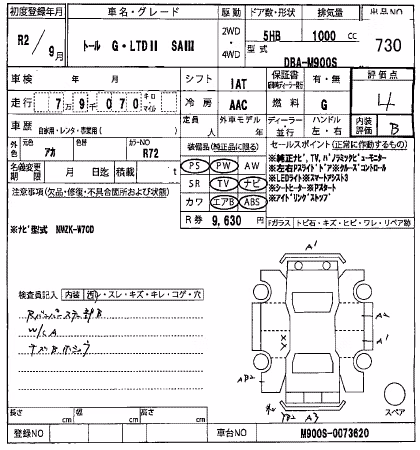 初度登録年月 車名・グレード 駆動 ドア数・形状 排気量 出品NO
R2/9月 トール G・LTDⅡ SAⅢ 2WD・4WD 5HB 1000 cc 730
型式 DBA-M900S
車検 年 月 シフト 1AT 保証書 有・無 評価点 4
走行 7万9千070 キロ マイル 冷房 AAC 燃料 G 内装評価 B
車歴 自家用・レンタ・専業用( ) 定員 人 外車モデル 年 ディーラー・並行 ハンドル 左・右
外色 元色 アカ 色替 カラーNO R72
装備品(純正品に限る) セールスポイント(正常に作動するもの)
名義変更期限 月 日迄 積載 t
PS PW AW
SR TV ナビ
カワ エアB ABS
R券 9,630 円
※純正ナビ、TV、パノラミックビューモニター
※左右Pスライドドア※クルーズコントロール
※LEDライト※スマートアシスト3
※シートヒーター※Pスタート
※アイドリングストップ
注意事項(欠品・修復・不具合箇所および状態)
※ナビ型式 NMZK-W70D
Fガラス トビ石・キズ・ヒビ・ワレ・リペア跡
検査員記入 内装 汚レ・スレ・キズ・キレ・コゲ・穴
W/CA
A1
A2
A1
X
X
AB2
A3
スペア
長さ cm 幅 cm 高さ cm
登録NO 車台NO M900S-0073620